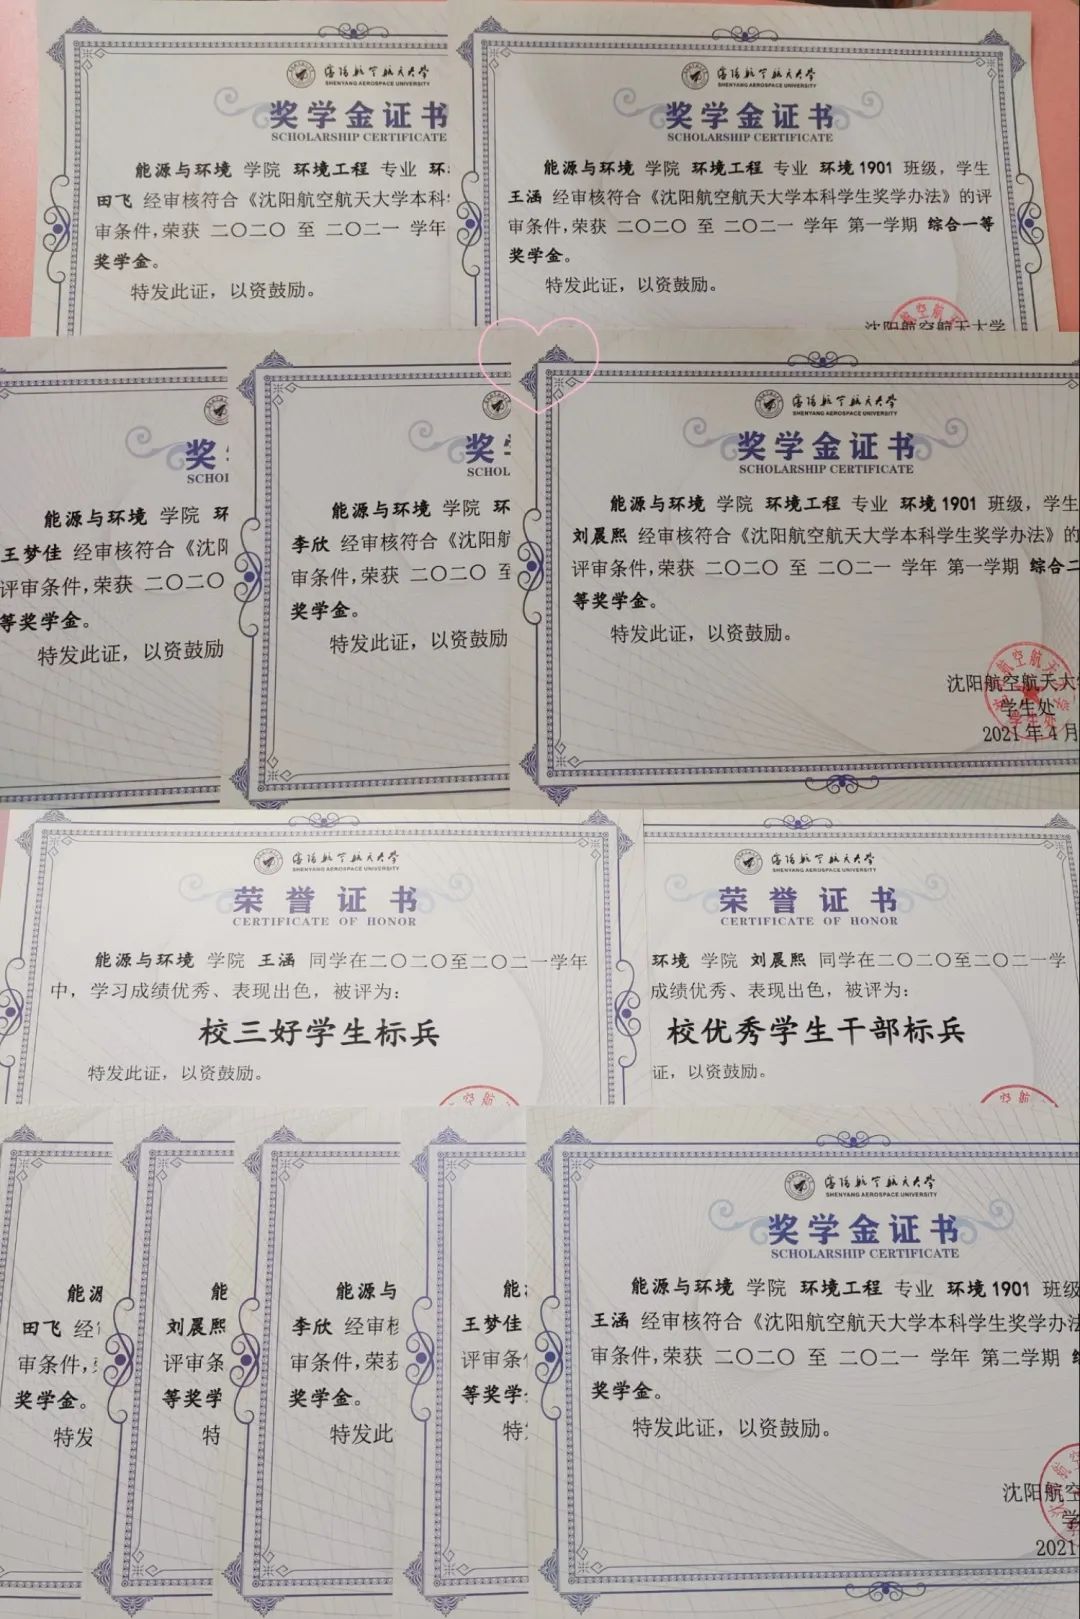 沈阳航空航天大学
SHENYANG AEROSPACE UNIVERSITY
奖学金证书
SCHOLARSHIP CERTIFICATE
能源与环境 学院 环境工程 专业 环
田飞 经审核符合《沈阳航空航天大学本科
审条件,荣获 二〇二〇 至 二〇二一 学年
奖学金。
特发此证，以资鼓励。
沈阳航空航天大学
SHENYANG AEROSPACE UNIVERSITY
奖学金证书
SCHOLARSHIP CERTIFICATE
能源与环境 学院 环境工程 专业 环境1901 班级，学生
王涵 经审核符合《沈阳航空航天大学本科学生奖学办法》的评
审条件,荣获 二〇二〇 至 二〇二一 学年 第一学期 综合一等
奖学金。
特发此证，以资鼓励。
沈阳航空航天大学
奖
SCHOL
能源与环境 学院 环
王梦佳 经审核符合《沈阳
评审条件,荣获 二〇二〇
等奖学金。
特发此证，以资鼓励
奖
SCHOL
能源与环境 学院 环
李欣 经审核符合《沈阳航
审条件,荣获 二〇二〇 至
奖学金。
特发此证，以资鼓励
沈阳航空航天大学
SHENYANG AEROSPACE UNIVERSITY
奖学金证书
SCHOLARSHIP CERTIFICATE
能源与环境 学院 环境工程 专业 环境1901 班级，学生
刘晨熙 经审核符合《沈阳航空航天大学本科学生奖学办法》的
评审条件,荣获 二〇二〇 至 二〇二一 学年 第一学期 综合二
等奖学金。
特发此证，以资鼓励。
沈阳航空航天大
学生处
2021年4月
沈阳航空航天大学
SHENYANG AEROSPACE UNIVERSITY
荣誉证书
CERTIFICATE OF HONOR
能源与环境 学院 王涵 同学在二〇二〇至二〇二一学年
中，学习成绩优秀、表现出色，被评为：
校三好学生标兵
特发此证，以资鼓励。
沈阳航空航天大学
SHENYANG AEROSPACE UNIVERSITY
荣誉证书
CERTIFICATE OF HONOR
环境 学院 刘晨熙 同学在二〇二〇至二〇二一学
成绩优秀、表现出色，被评为：
校优秀学生干部标兵
证，以资鼓励。
能源
田飞 经
审条件,
奖学金。
特发
能
刘晨熙
评审条
等奖学
特
能源与
李欣 经审核
审条件,荣获
奖学金。
特发此
能
王梦佳
评审条件
等奖学
特
沈阳航空航天大学
SHENYANG AEROSPACE UNIVERSITY
奖学金证书
SCHOLARSHIP CERTIFICATE
能源与环境 学院 环境工程 专业 环境1901 班级
王涵 经审核符合《沈阳航空航天大学本科学生奖学办法
审条件,荣获 二〇二〇 至 二〇二一 学年 第二学期
奖学金。
特发此证，以资鼓励。
沈阳航空
学
2021